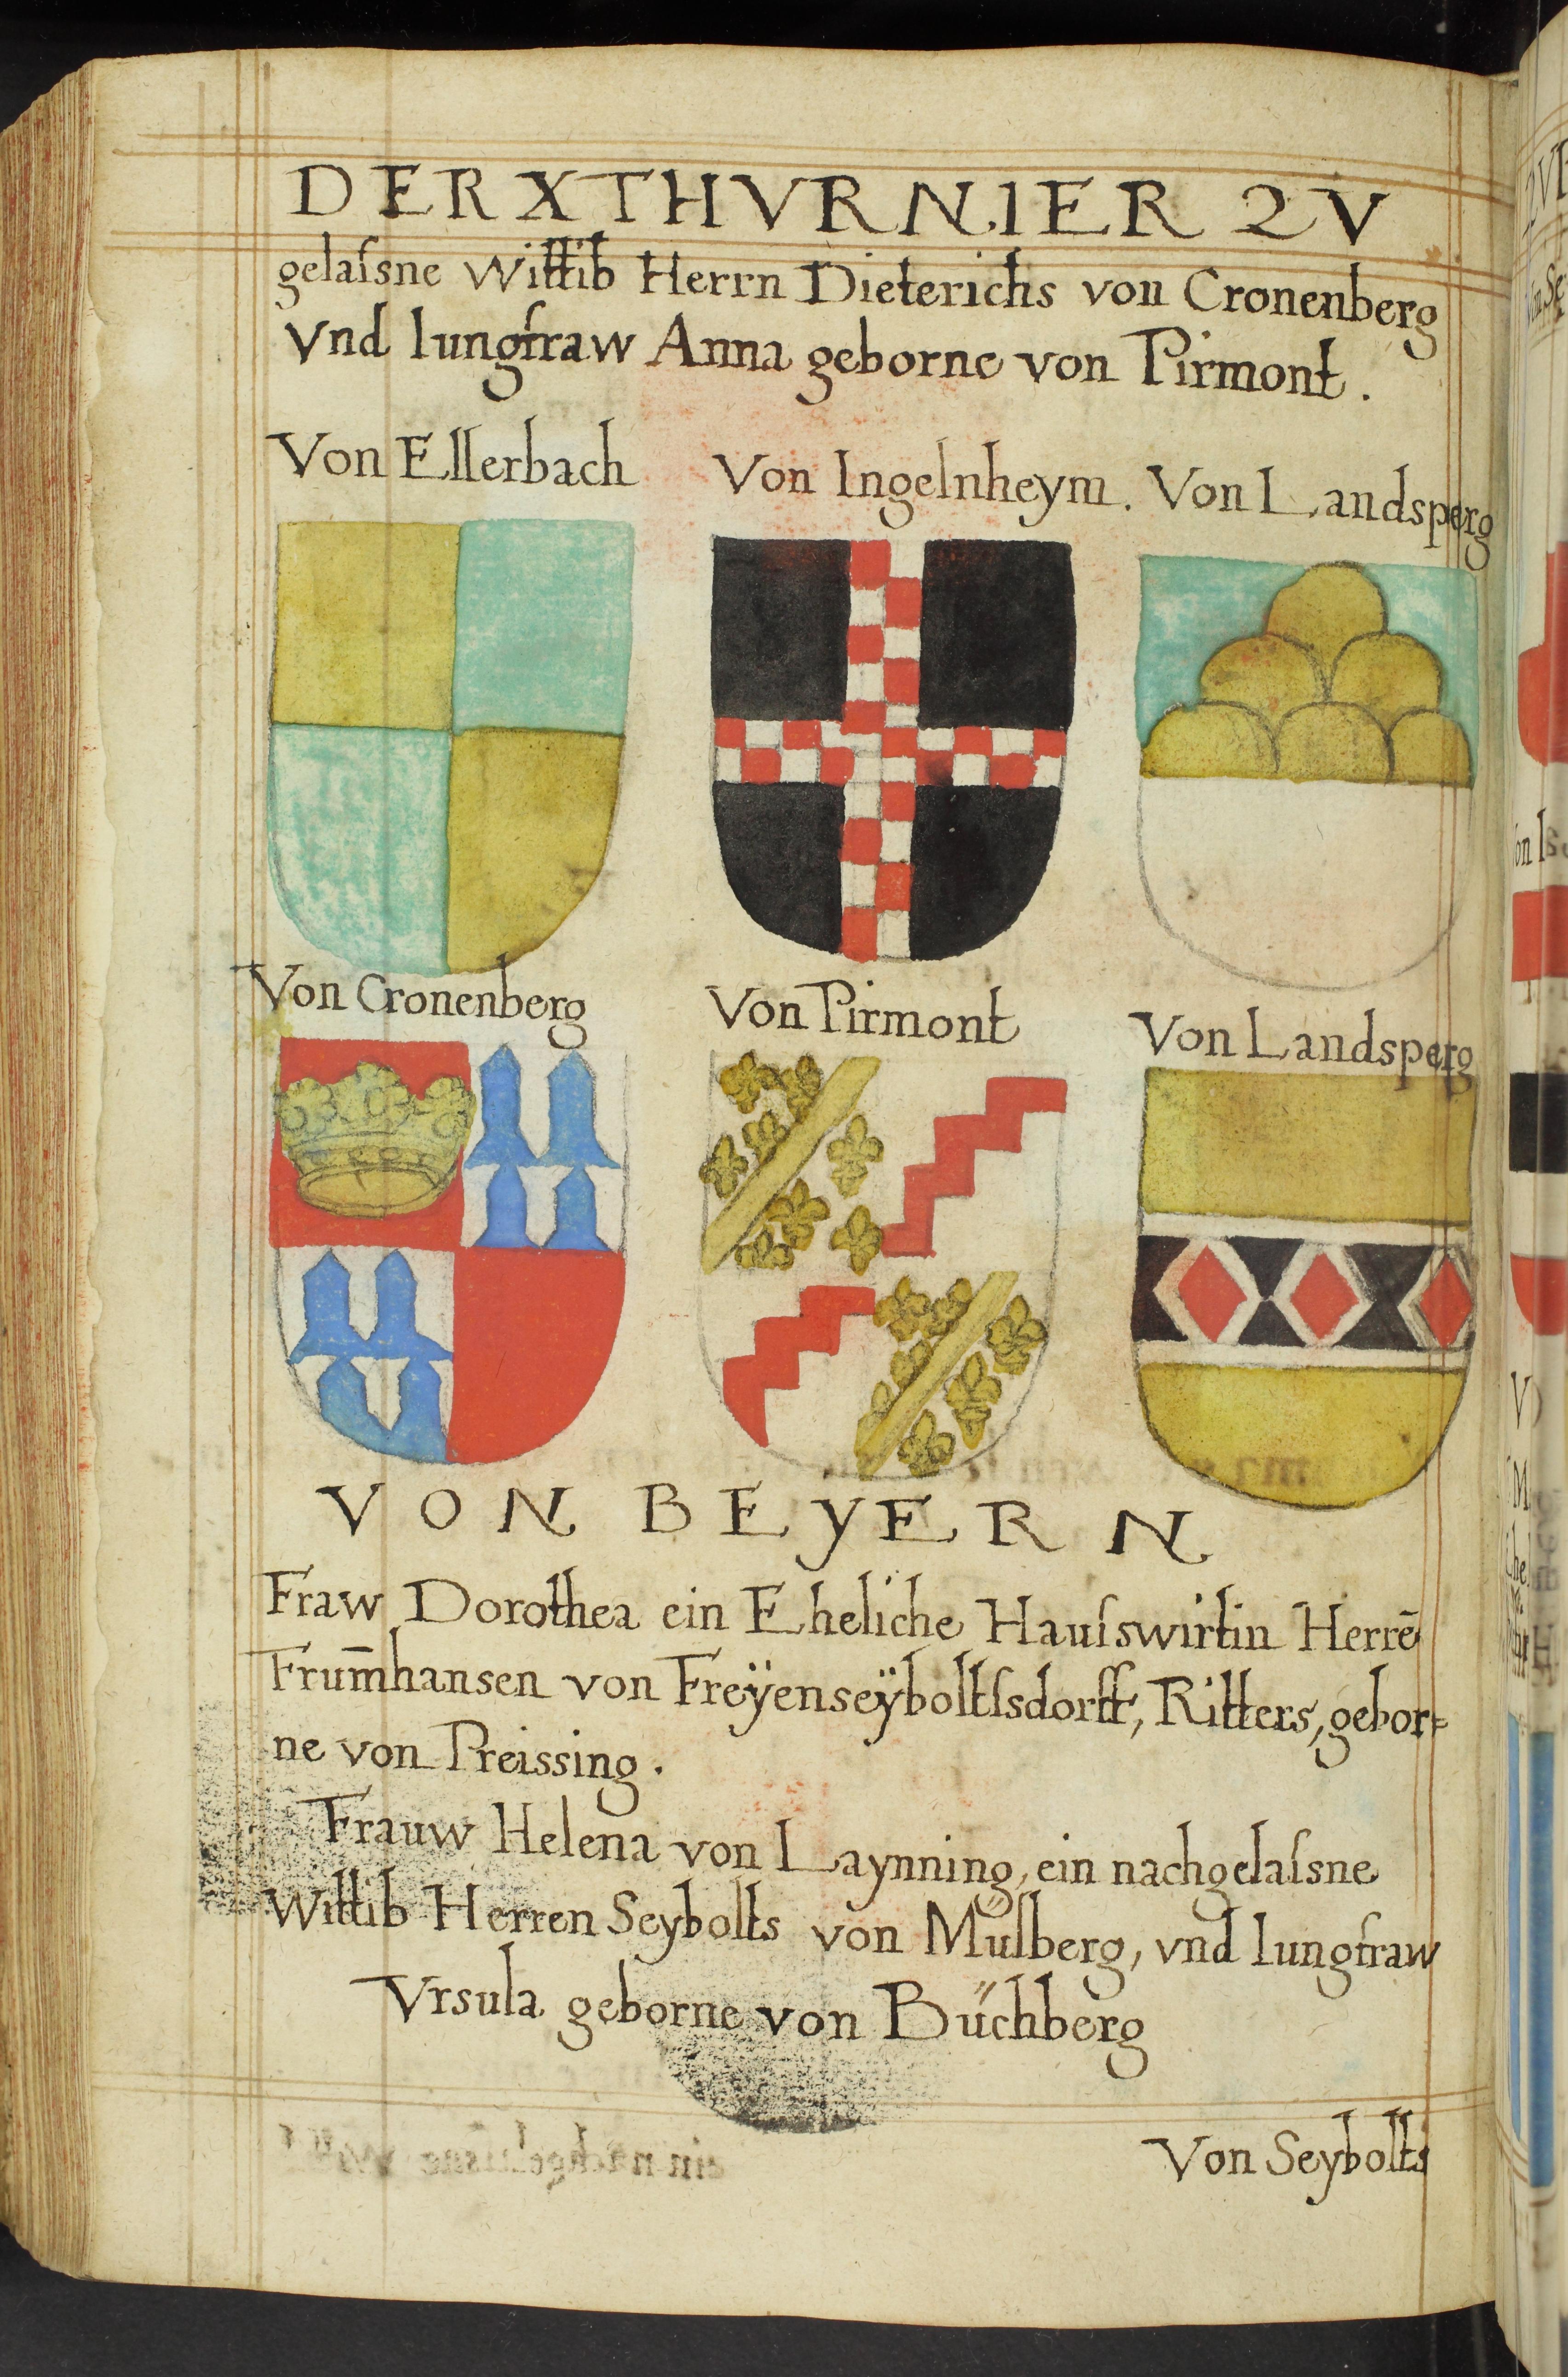 DER X THVRNIER ZV
gelaſsne Wittib Herrn Dieterichs von Cronenberg
Vnd Iungfraw Anna geborne von Pirmont.
Von Ellerbach Von Ingelnheym. Von Landsperg
Von Cronenberg Von Pirmont Von Landsperg
VON BEYERN
Fraw Dorothea ein Eheliche Hauſswirtin Herrē
Frum̄hansen von Freÿenseÿboltſsdorff, Ritters, gebor=
ne von Preissing.
Frauw Helena von Laynning, ein nachgelaſsne
Wittib Herren Seybolts von Müſberg, vnd Iungfraw
Vrsula geborne von Büchberg
Von Seybolts